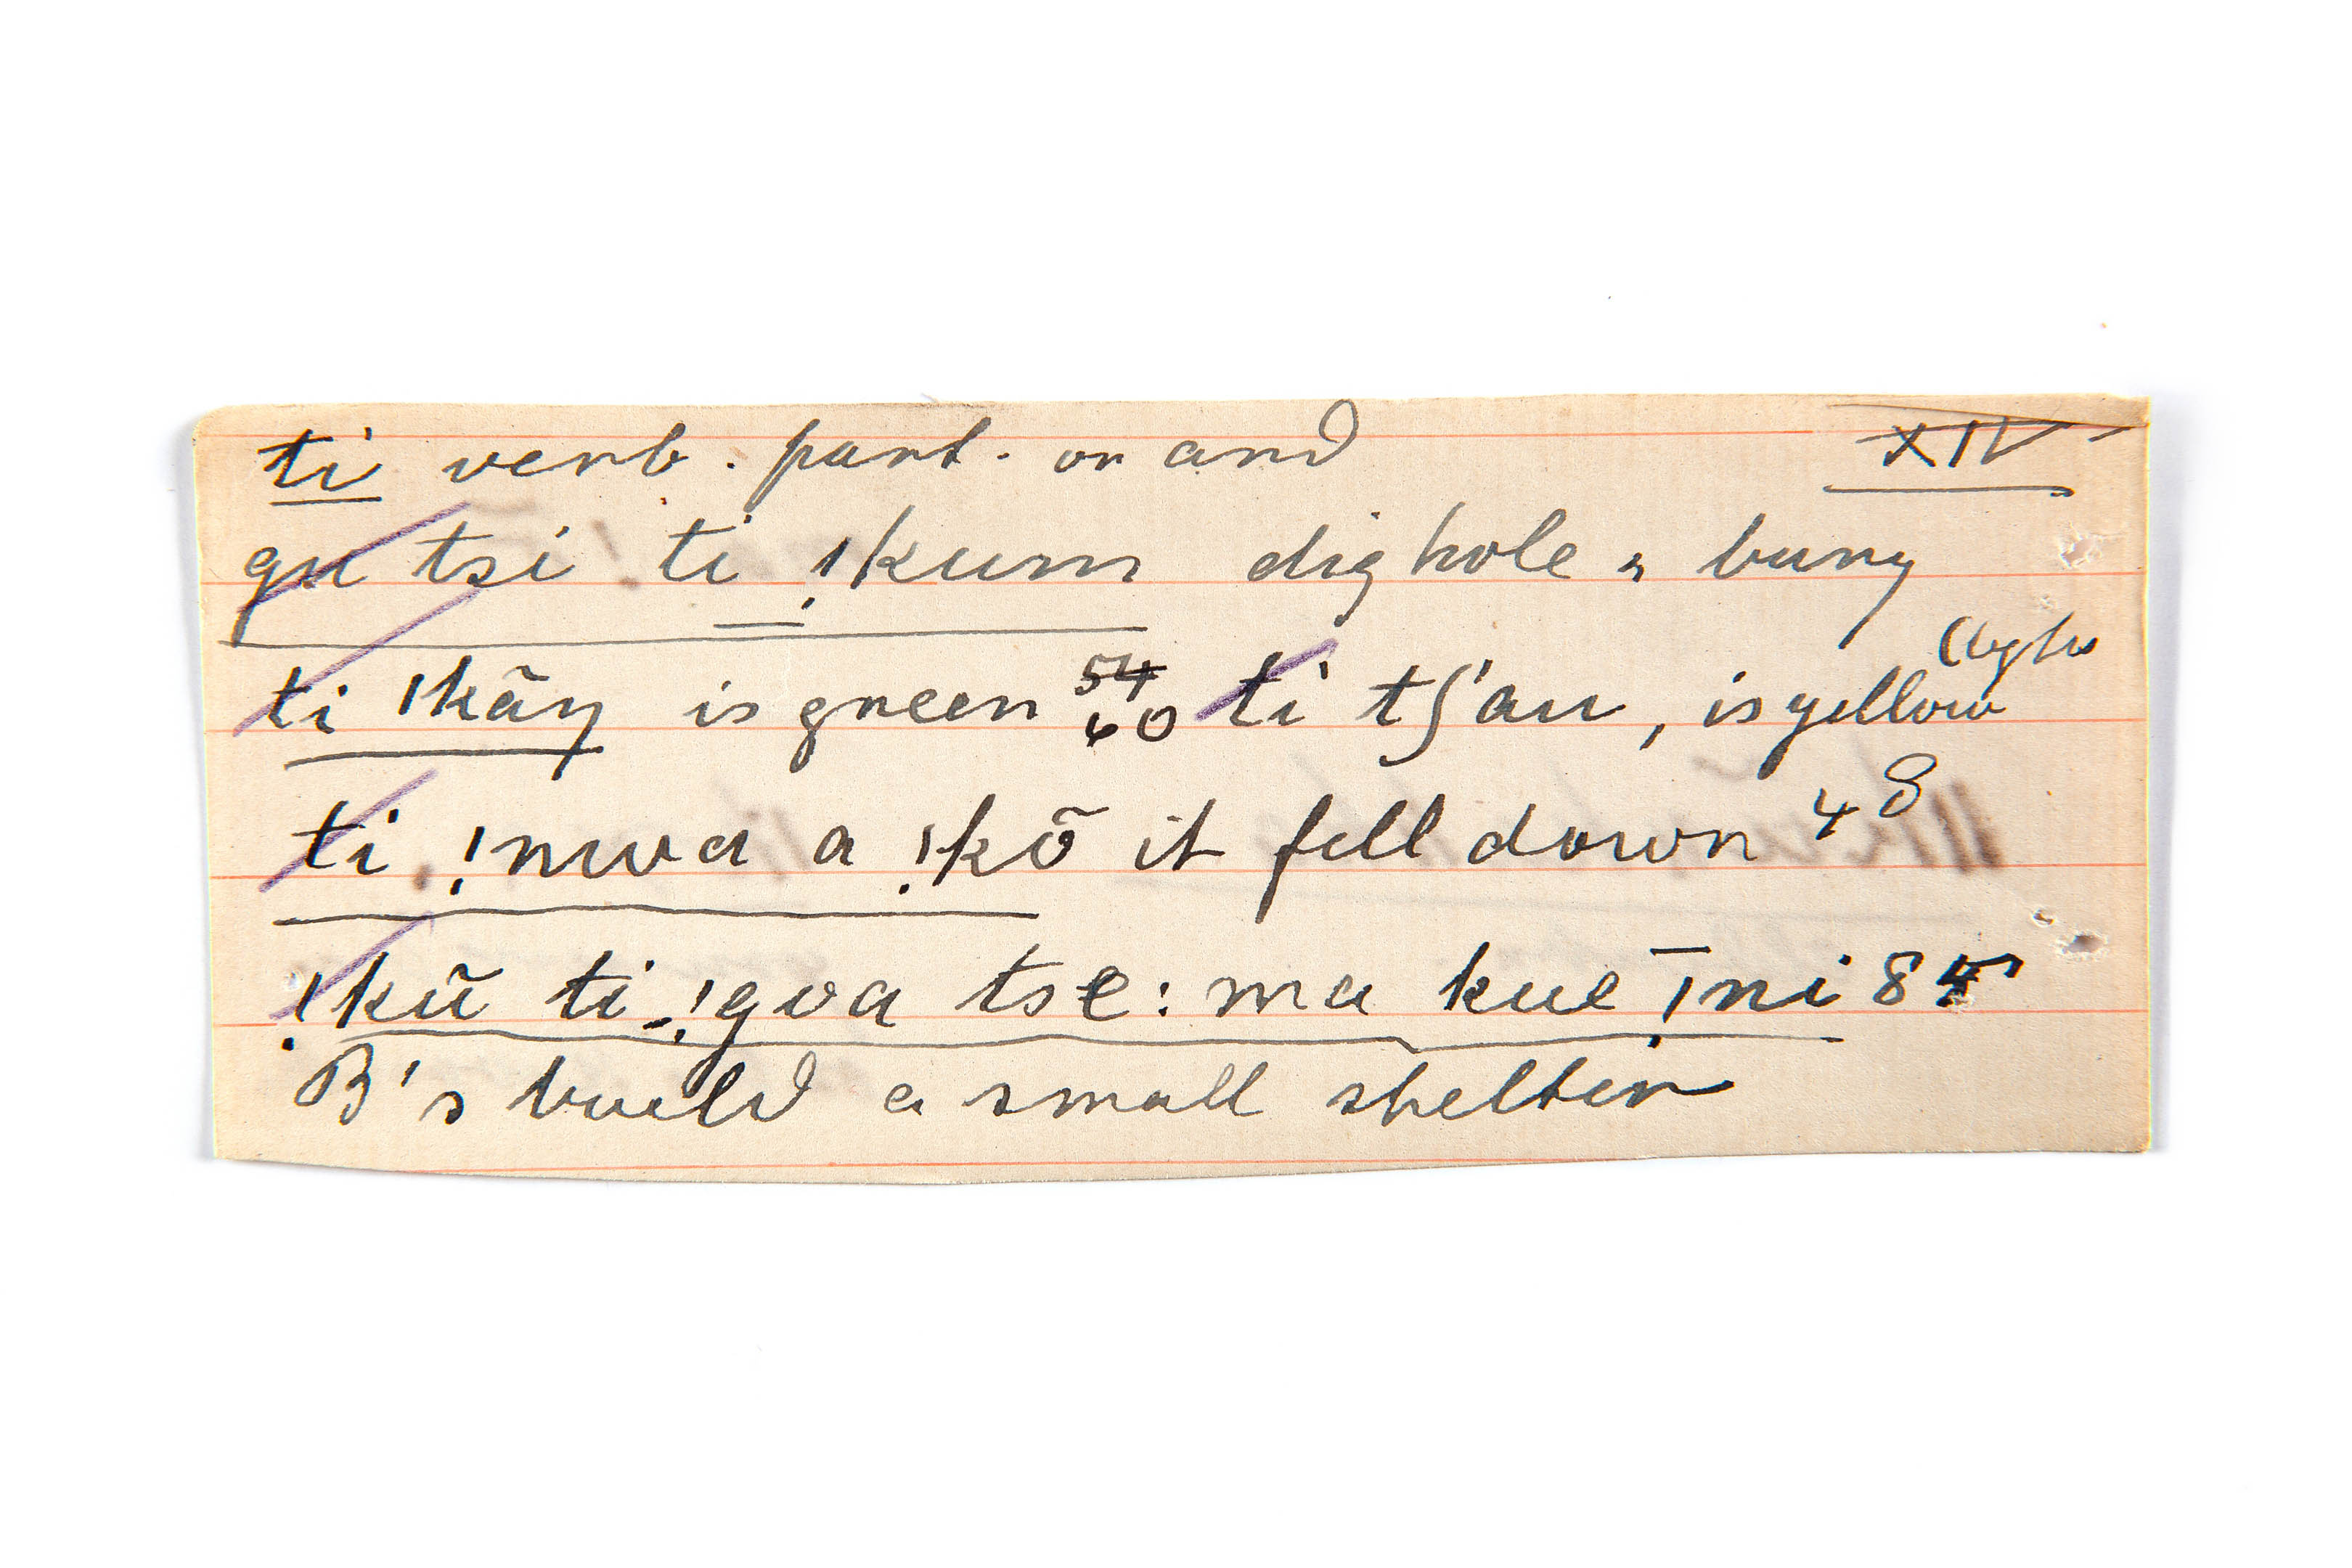 ti verb. part. or and XIV
gu tsi ti !kum dig hole & bury
(light
ti ǀkãŋ is green 54 60 ti tʃ'au, is yellow
ti !nwa a !kõ it fell down 48
!kũ ti !gva tse: ma kue īni 85
B's build a small shelter